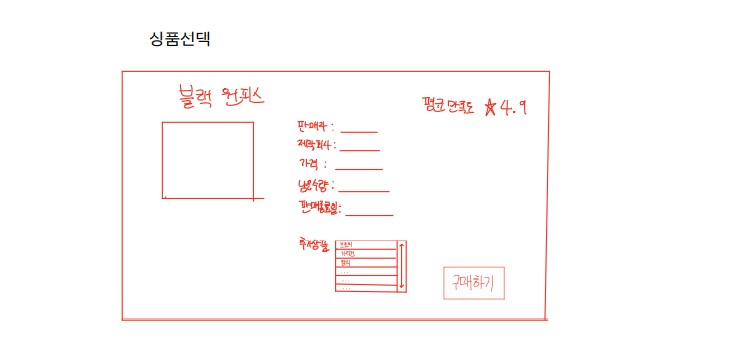 싱품선택
블랙 원피스
평균만족도 ☆4.9
판매자 :
제작회사 :
가격 :
남은수량 :
판매종료일:
추가상품
...
...
...
구매하기